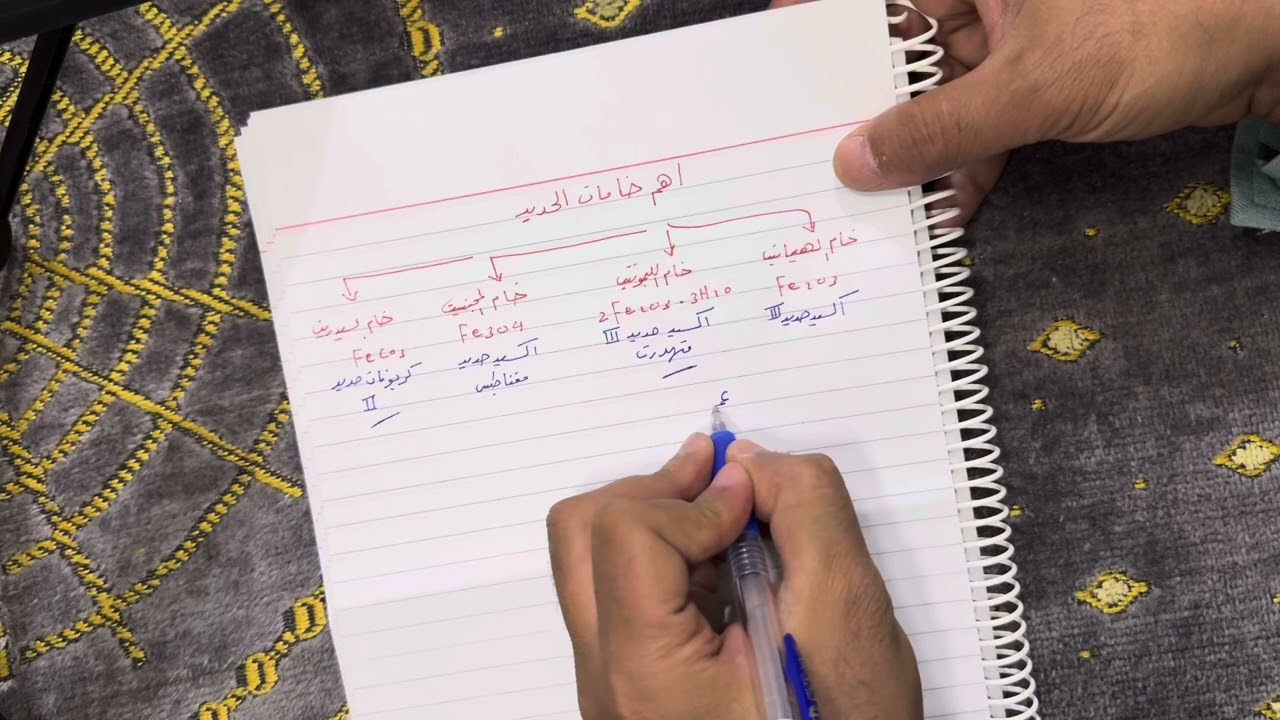 اهم خامات الحديد
خام الهيماتيت
Fe2O3
اكسيد حديد III
خام الليمونيت
2Fe2O3.3H2O
اكسيد حديد III
متهدرت
خام المجنتيت
Fe3O4
اكسيد حديد
مغناطيسي
خام السيدريت
FeCO3
كربونات حديد
II